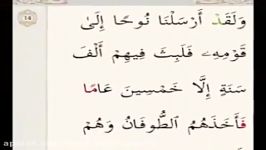 ١٤
وَلَقَدْ أَرْسَلْنَا نُوحًا إِلَىٰ
قَوْمِهِۦ فَلَبِثَ فِيهِمْ أَلْفَ
سَنَةٍ إِلَّا خَمْسِينَ عَامًا
فَأَخَذَهُمُ ٱلطُّوفَانُ وَهُمْ